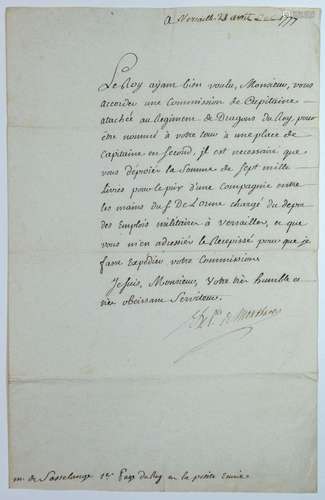 A Versailles 28 avril 1777
Le Roy ayant bien voulu, Monsieur, vous
accorder une Commission de Capitaine
attachée au Regiment de Dragons du Roy pour
être nommé à votre tour à une place de
Capitaine en Second, il est necessaire que
vous déposiés la Somme de Sept mille
Livres pour le prix d'une Compagnie entre
les mains du S. De Lorme chargé du depot
des Emplois militaires à Versailles, et que
vous m'en adressiés le Recepissé pour que je
fasse Expedier votre Commission
Je suis, Monsieur, Votre très humble et
très obeissant Serviteur
de Montbarey
M. de Sasselange 1er Page du Roy en la petite Ecurie